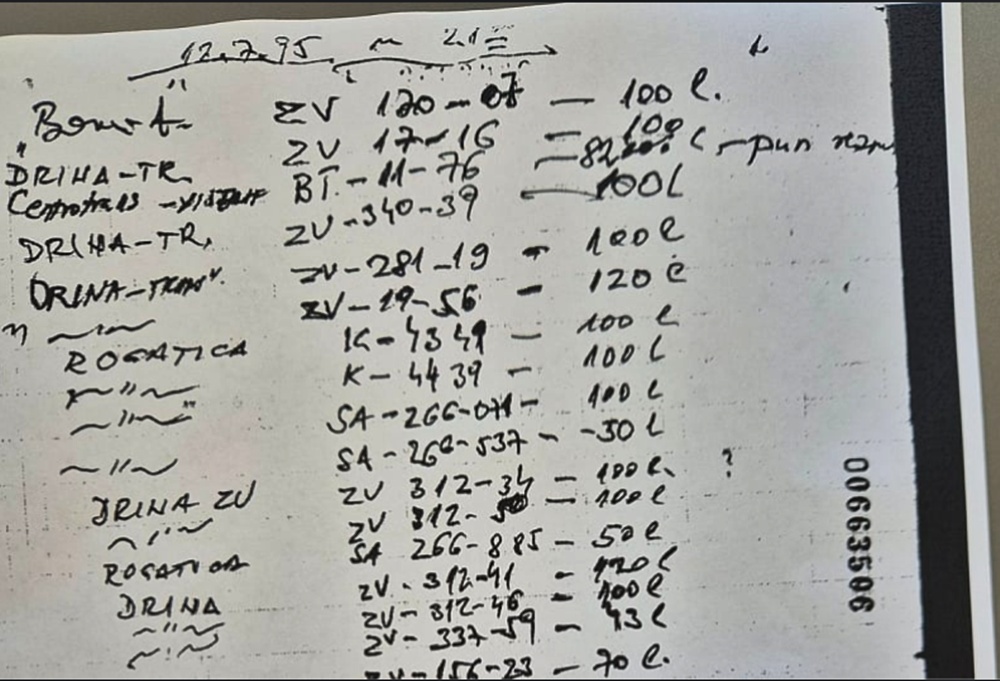 12.7.95 21
ZV 120-07 — 100 l.
DRINA-TR. ZV 17-16 — 100
Centrotrans BT.-11-76 — 82 l
DRINA-TR. ZV-340-39 — 100 l
DRINA-TRANS. ZV-281-19 - 100 l
" ZV-19-56 - 120 l
ROGATICA K-4349 - 100 l
-"- K-4439 - 100 l
-"- SA-266-071 - 100 l
-"- SA-266-537 - -50 l
DRINA ZV ZV 312-34 - 100 l. ?
-"- ZV 312-50 - 100 l
ROGATICA SA 266-885 - 50 l
DRINA ZV-312-41 - 120 l
-"- ZV-312-46 - 100 l
-"- ZV-337-59 - 43 l
ZV-156-23 - 70 l.
00663506